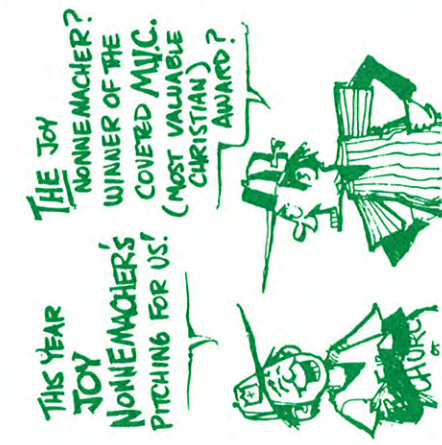 THIS YEAR
JOY
NONNEMACHER'S
PITCHING FOR US!
THE JOY
NONNEMACHER?
WINNER OF THE
COVETED M.V.C.
(MOST VALUABLE
CHRISTIAN)
AWARD?
OF